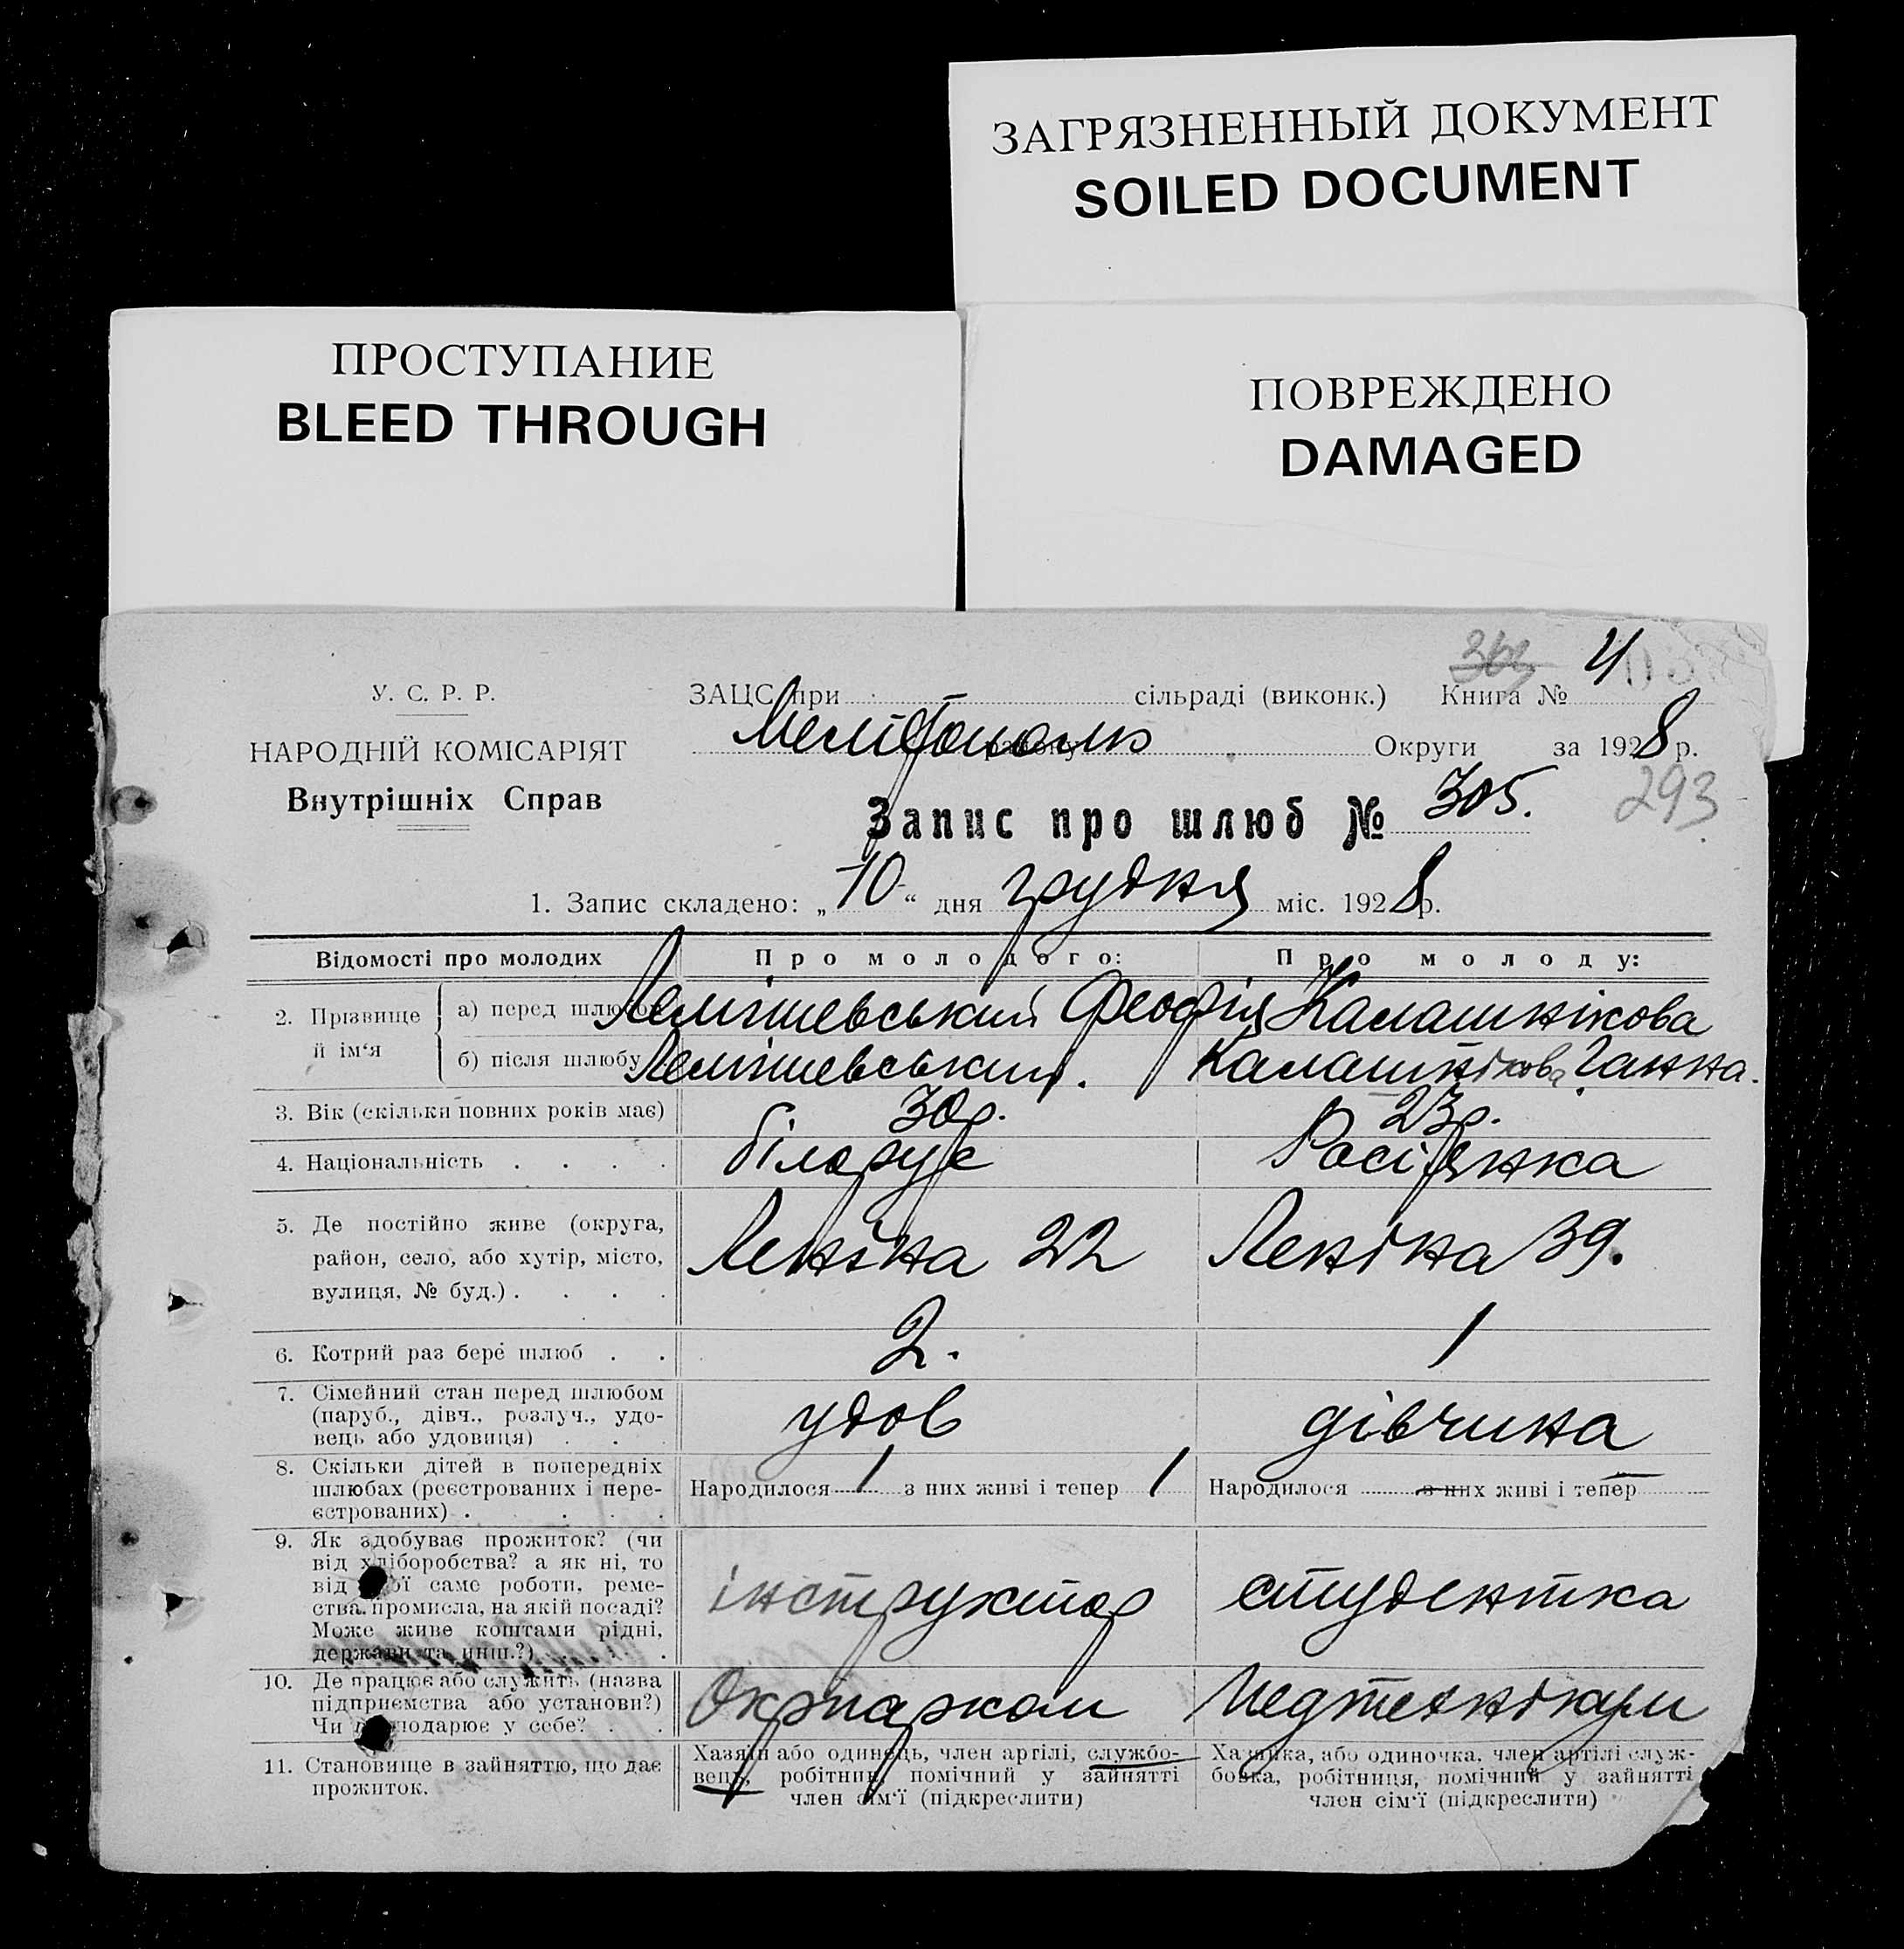 ЗАГРЯЗНЕННЫЙ ДОКУМЕНТ
SOILED DOCUMENT
ПРОСТУПАНИЕ
BLEED THROUGH
ПОВРЕЖДЕНО
DAMAGED
У. С. Р. Р.
НАРОДНІЙ КОМІСАРІЯТ
Внутрішніх Справ
ЗАЦС при сільраді (виконк.) Книга № 4
Округи за 1928 р.
293
Запис про шлюб № 305.
1. Запис складено: „10“ дня грудня міс. 1928 р.
Відомості про молодих Про молодого: Про молоду:
2. Прізвище й ім‘я
а) перед шлюбом Лемішевський Феофіл Калашнікова
б) після шлюбу Лемішевський. Калашнікова Ганна.
3. Вік (скільки повних років має) 30р. 23р.
4. Національність білорус Росіянка
5. Де постійно живе (округа,
район, село, або хутір, місто,
вулиця, № буд.) Леніна 22 Леніна 39.
6. Котрий раз бере шлюб 2. 1
7. Сімейний стан перед шлюбом
(паруб., дівч., розлуч., удо-
вець або удовиця) удов дівчина
8. Скільки дітей в попередніх
шлюбах (реєстрованих і нере-
єстрованих) Народилося 1 з них живі і тепер 1 Народилося — з них живі і тепер —
9. Як здобуває прожиток? (чи
від хліборобства? а як ні, то
від саме роботи, реме-
ства, промисла, на якій посаді?
Може живе коштами рідні,
держави та инш.?) інструктор студентка
10. Де працює або служить (назва
підприємства або установи?)
Чи у себе? Окрпарком Педтехнікум
11. Становище в зайняттю, що дає
прожиток.
Хазяїн або одинець, член артілі, службо-
вець, робітник, помічний у зайнятті
член сім‘ї (підкреслити)
Хазяйка, або одиночка, член артілі служ-
бовка, робітниця, помічний у зайнятті
член сім‘ї (підкреслити)